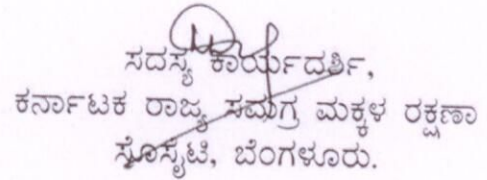 ಸದಸ್ಯ ಕಾರ್ಯದರ್ಶಿ,
ಕರ್ನಾಟಕ ರಾಜ್ಯ ಸಮಗ್ರ ಮಕ್ಕಳ ರಕ್ಷಣಾ
ಸೊಸೈಟಿ, ಬೆಂಗಳೂರು.